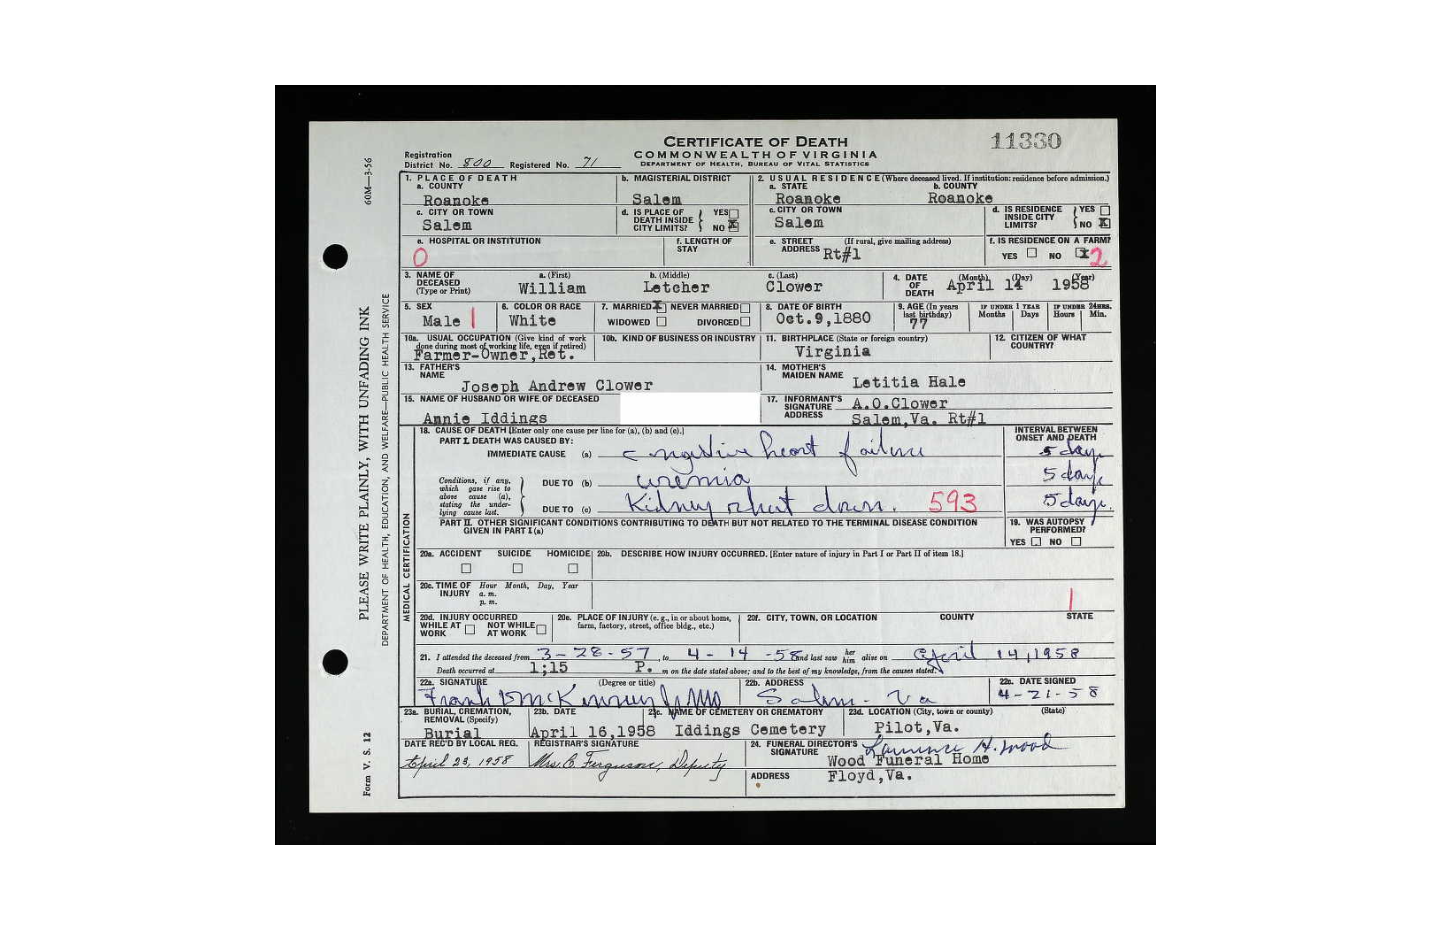 CERTIFICATE OF DEATH
11330
COMMONWEALTH OF VIRGINIA
DEPARTMENT OF HEALTH, BUREAU OF VITAL STATISTICS
Registration District No. 800 Registered No. 71
60M—3-56
PLEASE WRITE PLAINLY, WITH UNFADING INK
DEPARTMENT OF HEALTH, EDUCATION, AND WELFARE—PUBLIC HEALTH SERVICE
Form V. S. 12
1. PLACE OF DEATH
a. COUNTY
Roanoke
b. MAGISTERIAL DISTRICT
Salem
2. USUAL RESIDENCE (Where deceased lived. If institution: residence before admission.)
a. STATE
Roanoke
b. COUNTY
Roanoke
c. CITY OR TOWN
Salem
d. IS PLACE OF DEATH INSIDE CITY LIMITS? YES NO X
c. CITY OR TOWN
Salem
d. IS RESIDENCE INSIDE CITY LIMITS? YES NO X
e. HOSPITAL OR INSTITUTION
0
f. LENGTH OF STAY
e. STREET ADDRESS (If rural, give mailing address)
Rt#1
f. IS RESIDENCE ON A FARM?
YES NO X 2
3. NAME OF DECEASED (Type or Print)
a. (First)
William
b. (Middle)
Letcher
c. (Last)
Clower
4. DATE OF DEATH (Month) (Day) (Year)
April 14 1958
5. SEX
Male 1
6. COLOR OR RACE
White
7. MARRIED X NEVER MARRIED
WIDOWED DIVORCED
8. DATE OF BIRTH
Oct.9,1880
9. AGE (In years last birthday)
77
IF UNDER 1 YEAR
Months Days
IF UNDER 24 HRS.
Hours Min.
10a. USUAL OCCUPATION (Give kind of work done during most of working life, even if retired)
Farmer-Owner,Ret.
10b. KIND OF BUSINESS OR INDUSTRY
11. BIRTHPLACE (State or foreign country)
Virginia
12. CITIZEN OF WHAT COUNTRY?
13. FATHER'S NAME
Joseph Andrew Clower
14. MOTHER'S MAIDEN NAME
Letitia Hale
15. NAME OF HUSBAND OR WIFE OF DECEASED
Annie Iddings
17. INFORMANT'S SIGNATURE A.O.Clower
ADDRESS Salem,Va. Rt#1
MEDICAL CERTIFICATION
18. CAUSE OF DEATH [Enter only one cause per line for (a), (b) and (c).]
PART I. DEATH WAS CAUSED BY:
INTERVAL BETWEEN ONSET AND DEATH
IMMEDIATE CAUSE (a) congestive heart failure 5 days
Conditions, if any, which gave rise to above cause (a), stating the underlying cause last.
DUE TO (b) uremia 5 days
DUE TO (c) Kidney shut down. 593 5 days.
PART II. OTHER SIGNIFICANT CONDITIONS CONTRIBUTING TO DEATH BUT NOT RELATED TO THE TERMINAL DISEASE CONDITION GIVEN IN PART I (a)
19. WAS AUTOPSY PERFORMED?
YES NO
20a. ACCIDENT SUICIDE HOMICIDE
20b. DESCRIBE HOW INJURY OCCURRED. [Enter nature of injury in Part I or Part II of item 18.]
20c. TIME OF INJURY Hour Month, Day, Year
a. m.
p. m.
1
20d. INJURY OCCURRED
WHILE AT WORK NOT WHILE AT WORK
20e. PLACE OF INJURY (e. g., in or about home, farm, factory, street, office bldg., etc.)
20f. CITY, TOWN, OR LOCATION COUNTY STATE
21. I attended the deceased from 3-28-57, to 4-14-58 and last saw her him alive on April 14, 1958
Death occurred at 1;15 P. m on the date stated above; and to the best of my knowledge, from the causes stated.
22a. SIGNATURE (Degree or title)
Frank D McKinney Jr MD
22b. ADDRESS
Salem - Va
22c. DATE SIGNED
4-21-58
23a. BURIAL, CREMATION, REMOVAL (Specify)
Burial
23b. DATE
April 16,1958
23c. NAME OF CEMETERY OR CREMATORY
Iddings Cemetery
23d. LOCATION (City, town or county) (State)
Pilot,Va.
DATE REC'D BY LOCAL REG.
April 23, 1958
REGISTRAR'S SIGNATURE
Mrs. C. Ferguson, Deputy
24. FUNERAL DIRECTOR'S SIGNATURE H. Wood
Wood Funeral Home
ADDRESS Floyd,Va.